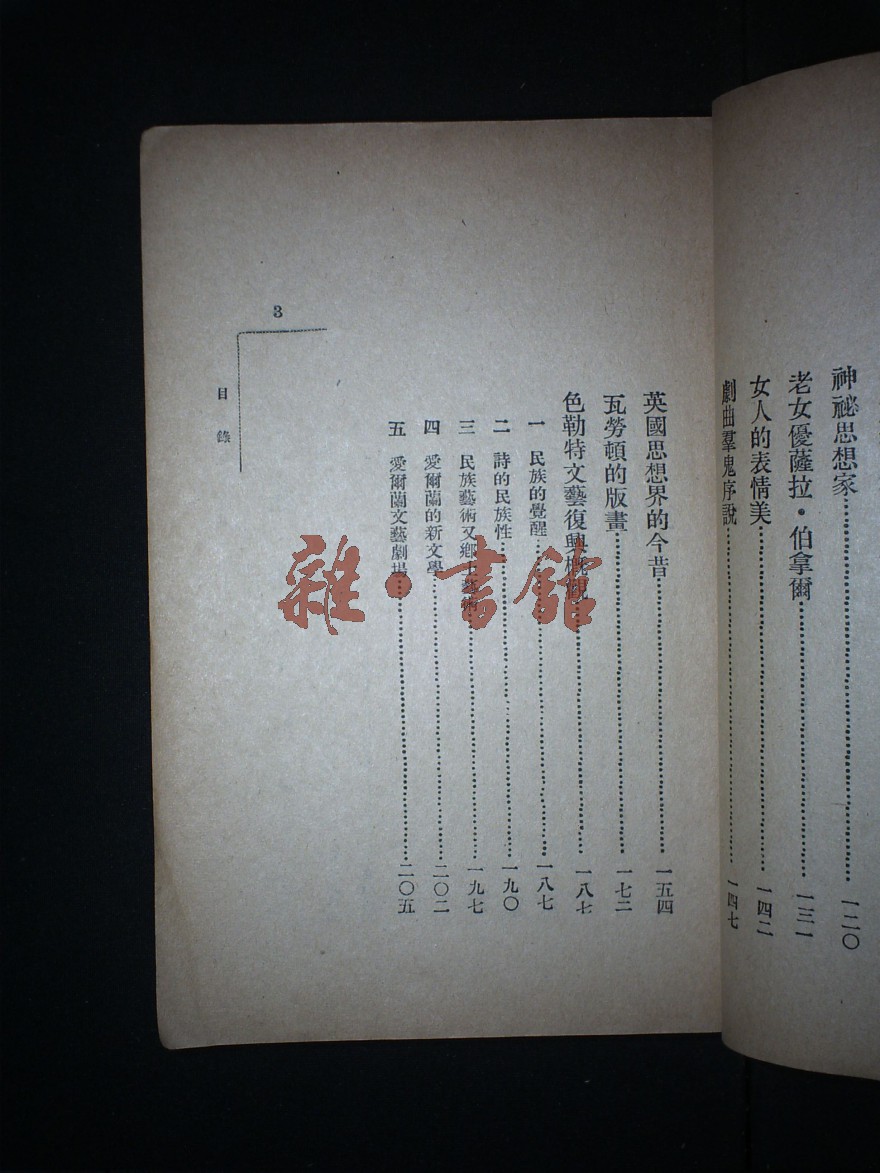 神祕思想家……一二〇
老女優薩拉·伯拿爾……一三一
女人的表情美……一四二
劇曲羣鬼序說……一四七
英國思想界的今昔……一五四
瓦勞頓的版畫……一七二
色勒特文藝復興概觀……一八七
一 民族的覺醒……一八七
二 詩的民族性……一九〇
三 民族藝術又鄉土藝術……一九七
四 愛爾蘭的新文學……二〇二
五 愛爾蘭文藝劇場……二〇五
目錄
3
雜·書館